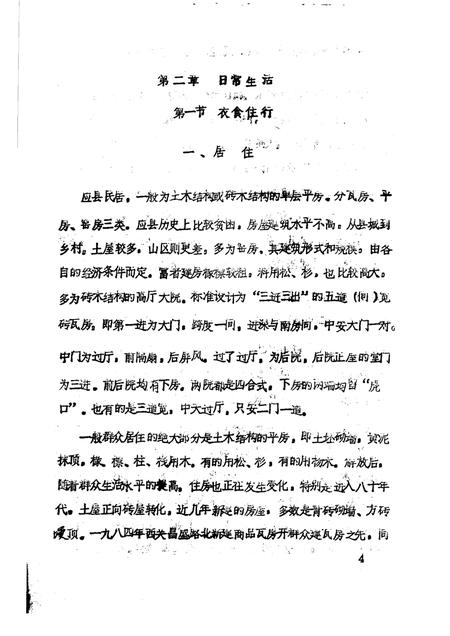 第二章 日常生活
第一节 衣食住行
一、居 住
应县民居，一般为土木结构或砖木结构的单层平房。分瓦房、平
房、窑房三类。应县历史上比较贫困，房屋建筑水平不高。从县城到
乡村。土屋较多，山区则更差，多为窑房。其建筑形式和规模，由各
自的经济条件而定。富者建房椽檩较粗，料用松、杉，也比较高大。
多为砖木结构的高厅大院。标准设计为“三进三出”的五道（间）宽
砖瓦房。即第一进为大门，跨度一间，进深与南房同，中安大门一对。
中门为过厅，前隔扇，后屏风。过了过厅，为后院，后院正屋的堂门
为三进。前后院均有下房。两院都是四合式，下房的 墙均 “虎
口”。也有的是三道宽，中大过厅，只安二门一道。
一般群众居住的绝大部分是土木结构的平房，即土坯砌墙，黄泥
抹顶。椽、檩、柱、栈用木。有的用松、杉，有的用杨木。解放后，
随着群众生活水平的提高，住房也正在发生变化，特别是进入八十年
代。土屋正向砖屋转化，近几年新建的房屋，多数是青砖砌墙、方砖
墁顶。一九八四年西关昌盛路北新建商品瓦房开群众建瓦房之先，间
4